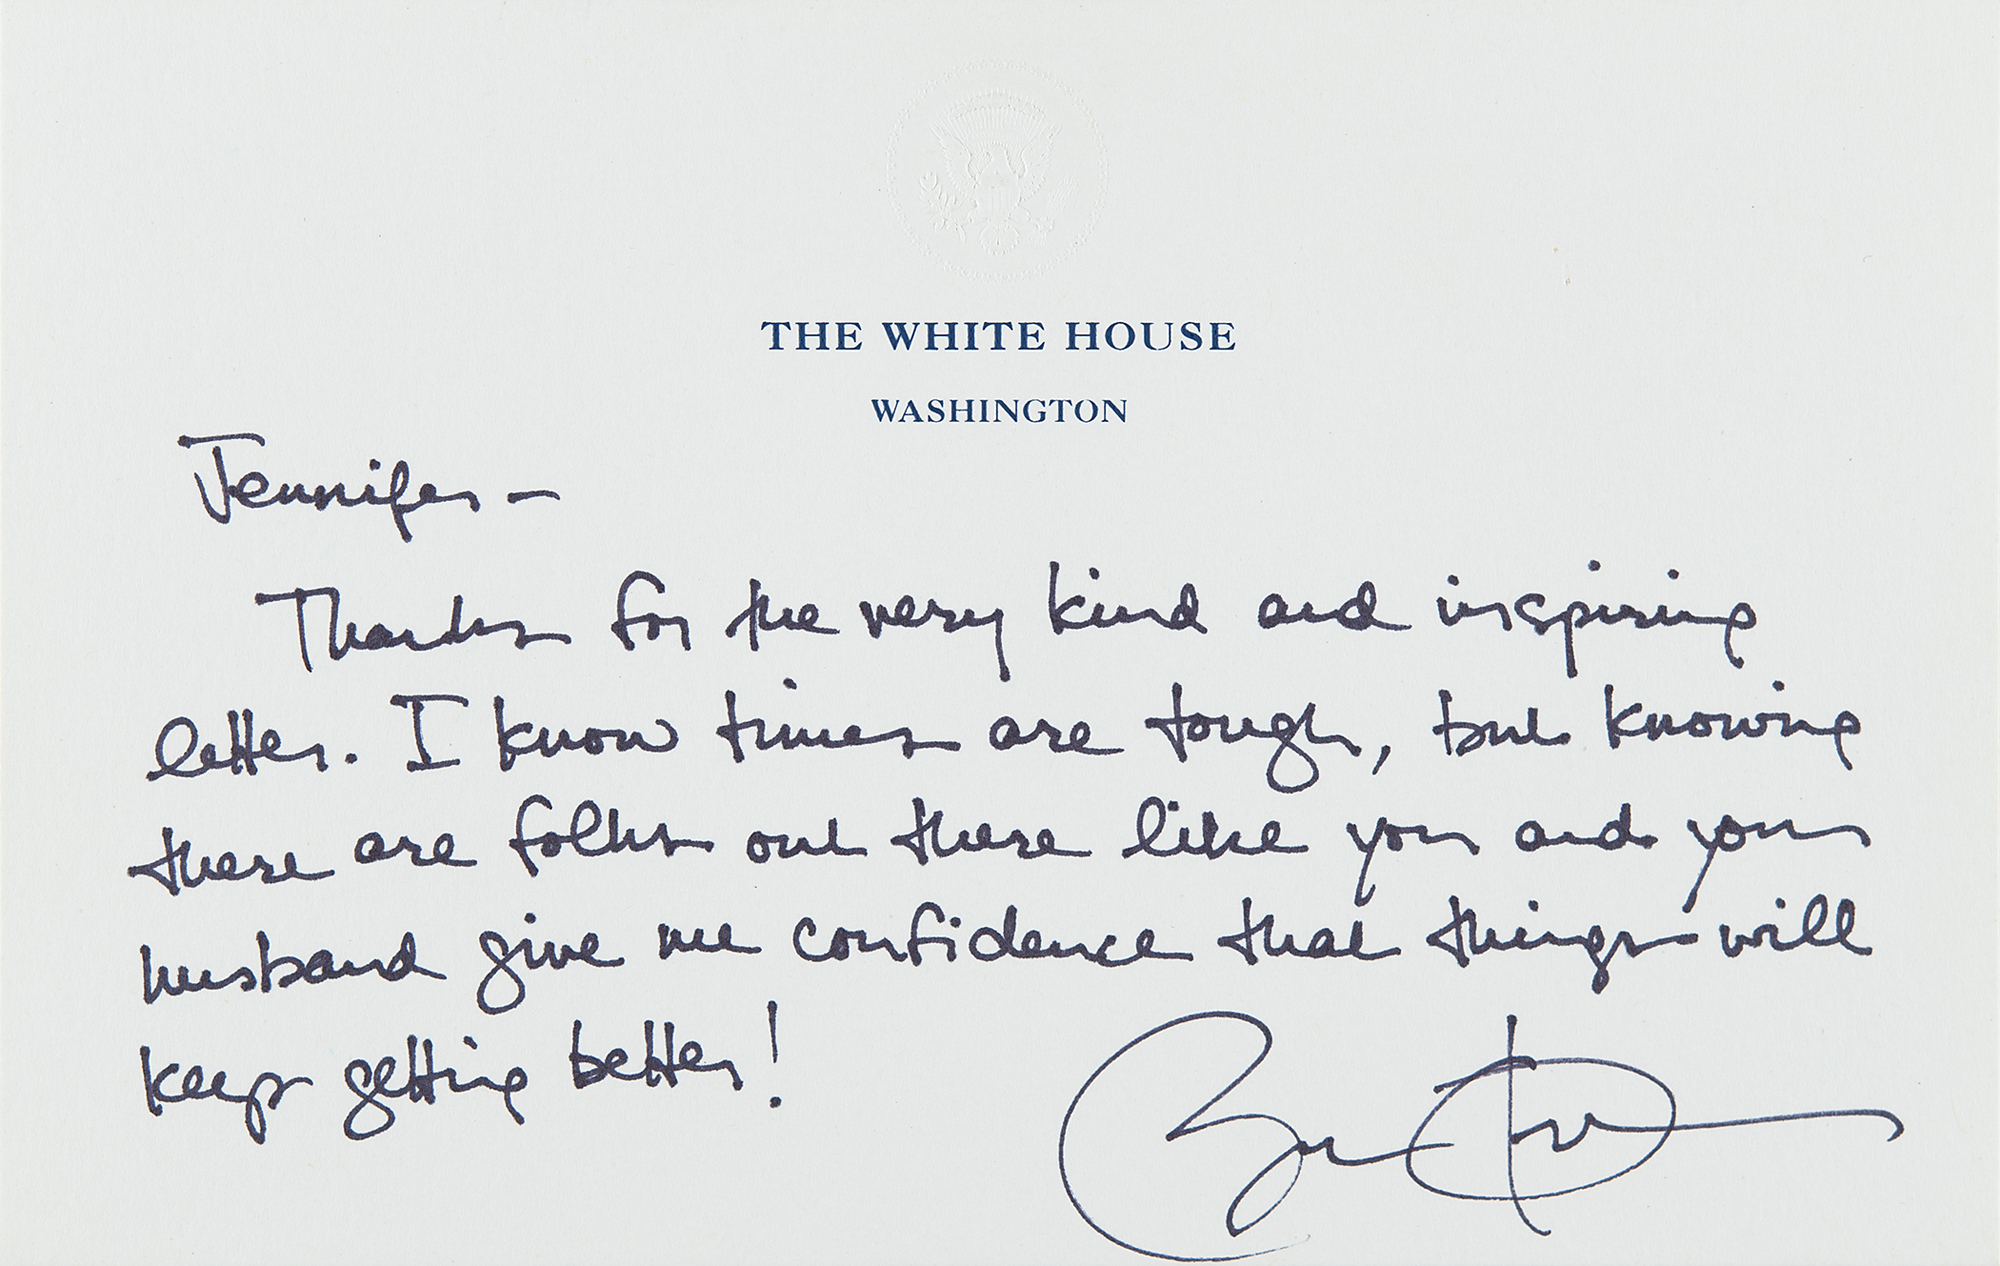 THE WHITE HOUSE
WASHINGTON
Jennifer –
Thanks for the very kind and inspiring
letter. I know times are tough, but knowing
there are folks out there like you and your
husband give me confidence that things will
keep getting better!